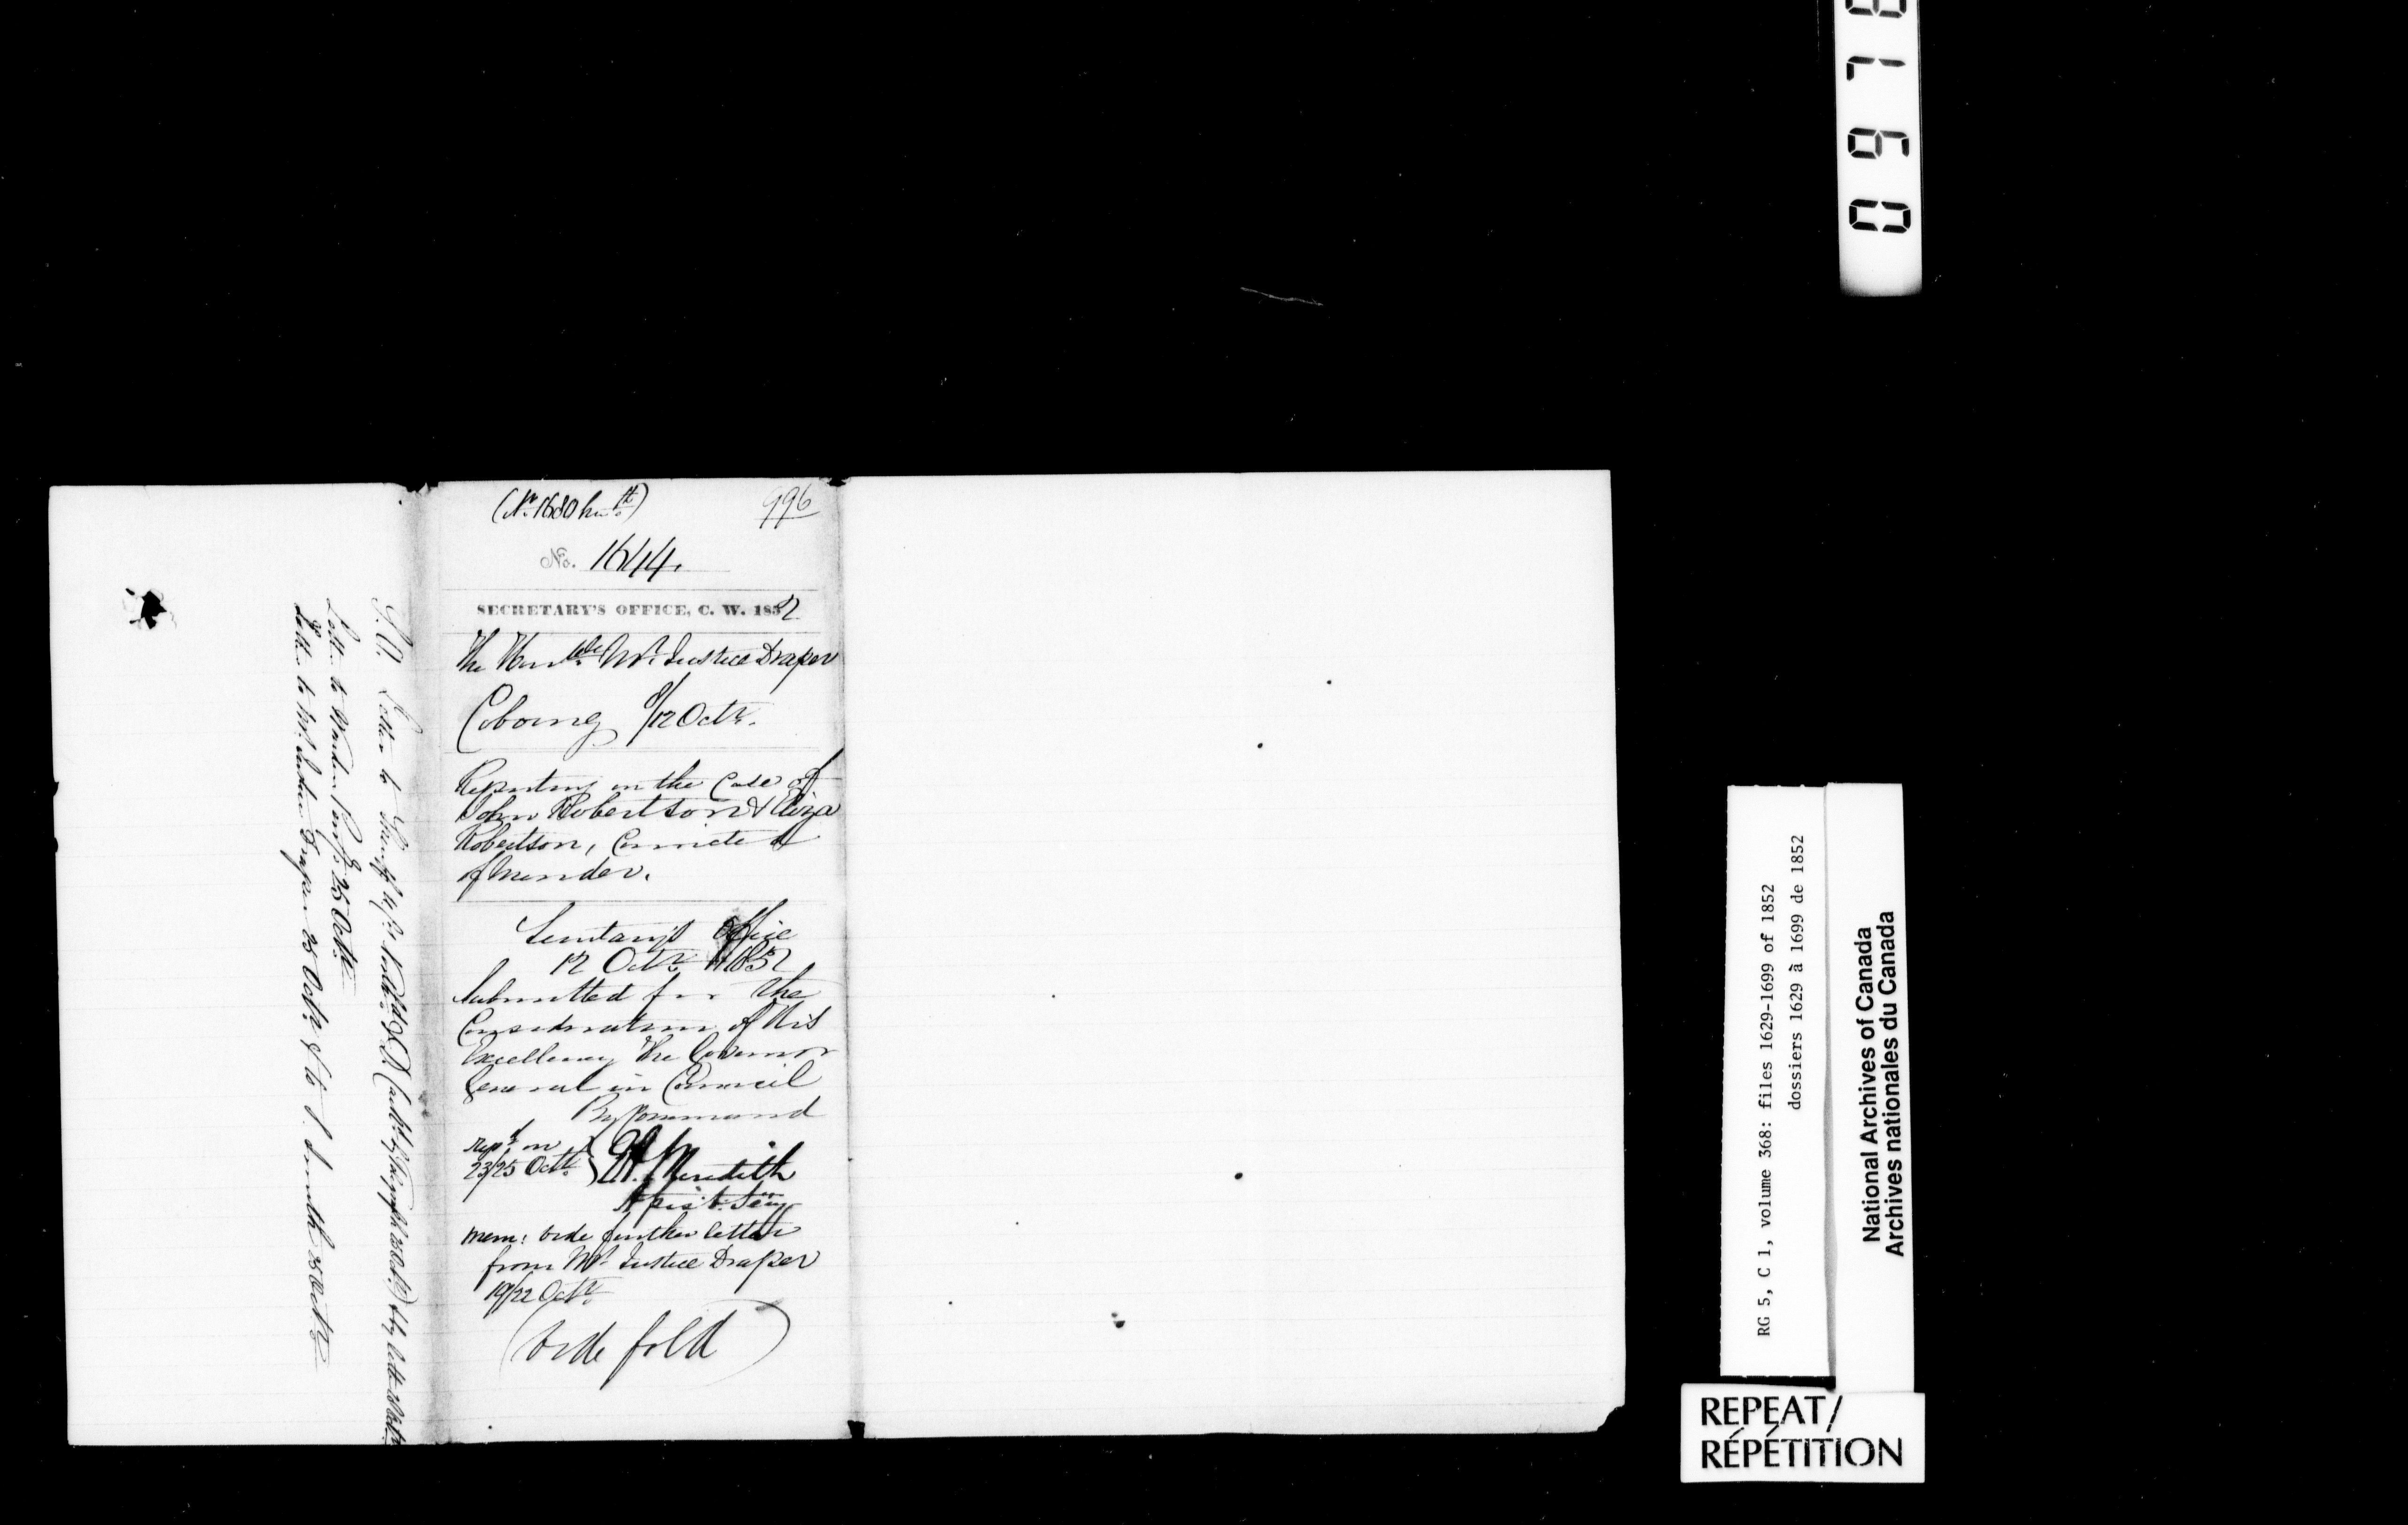 (No. 1680 herewth)
996
No. 1644.
SECRETARY'S OFFICE, C. W. 1852
The Honble Mr. Justice Draper
Cobourg 9/12 Octr.
Reporting on the Case of
John Robertson & Eliza
Robertson, Convicted
of Murder.
Secretary's Office
12 Octr. 1852
Submitted for the
Consideration of His
Excellency the Governor
General in Council
By Command
repd. on
23/25 Octr.
E. A. Meredith
Assist. Secy
mem: vide further letter
from Mr. Justice Draper
19/22 Octr.
(vide fold)
Letter to Sheriff
Letter to Warden 25 Octr.
Letter to Mr. Justice Draper 25 Octr. & to S. Smith 25 Octr.
0978
RG 5, C 1, volume 368: files 1629-1699 of 1852
dossiers 1629 à 1699 de 1852
National Archives of Canada
Archives nationales du Canada
REPEAT/
RÉPÉTITION